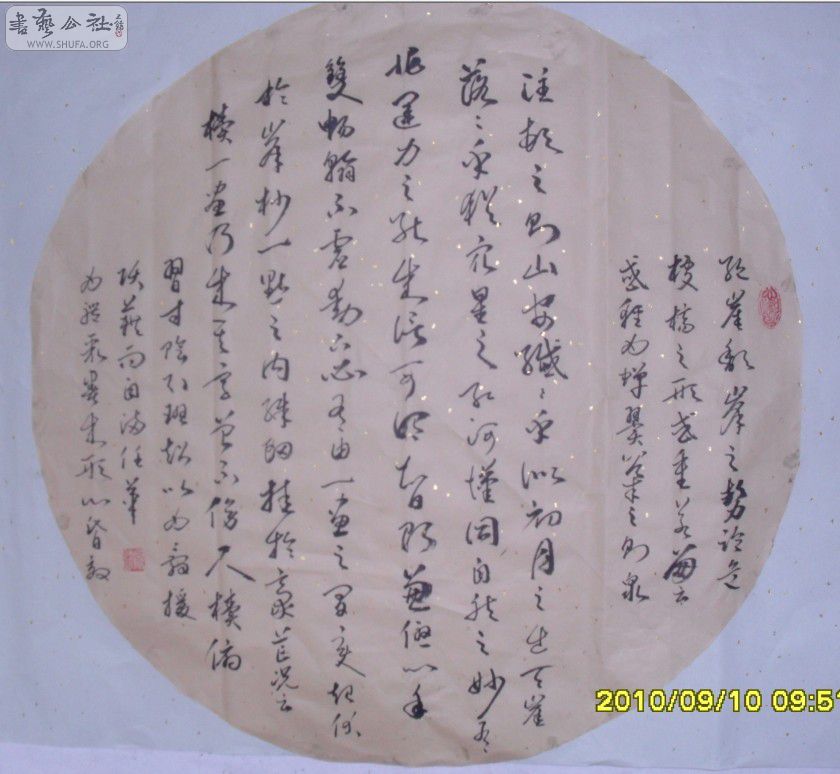 書藝公社
WWW.SHUFA.ORG
絕崖頹峯之勢臨危
據槁之形或重若崩雲
或輕如蟬翼導之則泉
注頓之則山安纖〻乎似初月之出天崖
落〻乎猶众星之列河漢同自然之妙有
非運力之能成信可謂智巧兼優心手
雙暢翰不虛動下必有由一畫之間變起伏
於峯杪一點之內殊衄挫於豪芒況云
積一畫乃成其字曾不傍尺牘俯
習寸陰引班超以為辭援
項籍而自滿任筆
為體聚墨成形心昏擬
2010/09/10 09:51